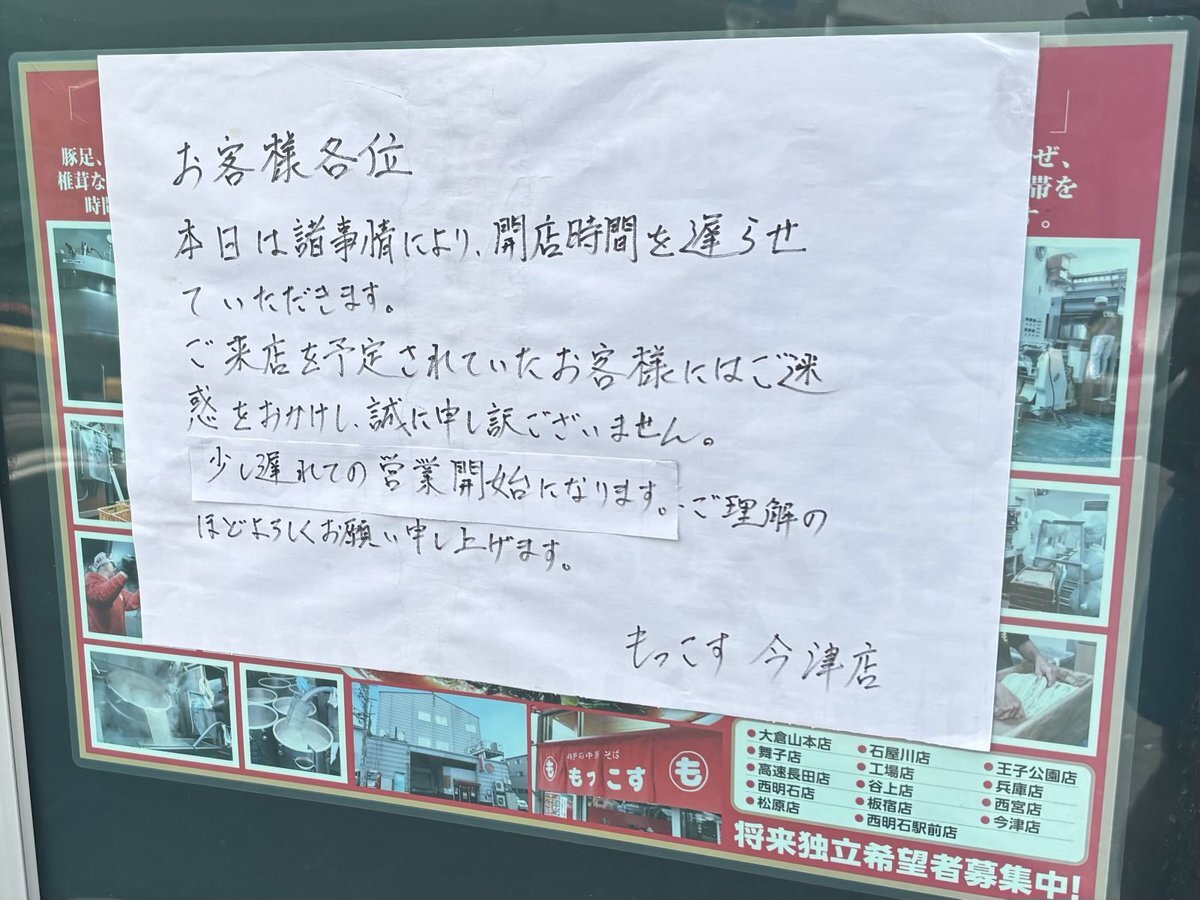 お客様各位
本日は諸事情により、開店時間を遅らせ
ていただきます。
ご来店を予定されていたお客様にはご迷
惑をおかけし、誠に申し訳ございません。
少し遅れての営業開始になります。ご理解の
ほどよろしくお願い申し上げます。
もっこす 今津店
豚足、
椎茸な
時間
ぜ、
帯を
す。
神戸の中華そば
も もっこす も
大倉山本店
舞子店
高速長田店
西明石店
松原店
石屋川店
工場店
谷上店
板宿店
西明石駅前店
王子公園店
兵庫店
西宮店
今津店
将来独立希望者募集中!